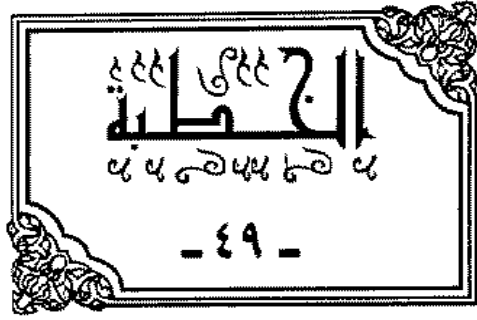 الخطبة
- ٤٩ -